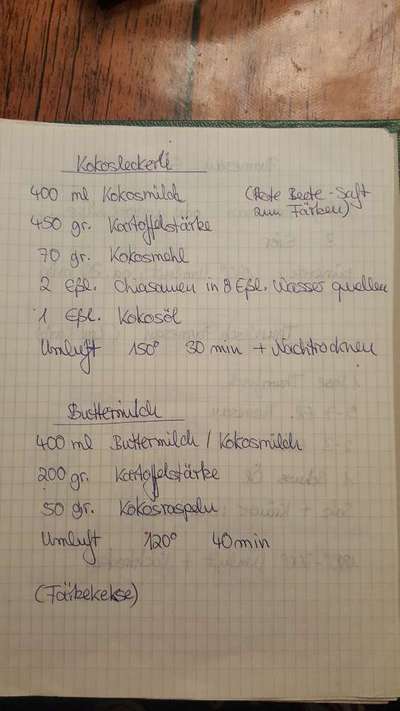 Kokosleckerli
400 ml Kokosmilch (Rote Beete-Saft
zum Färben)
450 gr. Kartoffelstärke
70 gr. Kokosmehl
2 Eßl. Chiasamen in 8 Eßl. Wasser quellen
1 Eßl. Kokosöl
Umluft 150° 30 min + Nachtrocknen
Buttermilch
400 ml Buttermilch / Kokosmilch
200 gr. Kartoffelstärke
50 gr. Kokosraspeln
Umluft 120° 40 min
(Färbekekse)